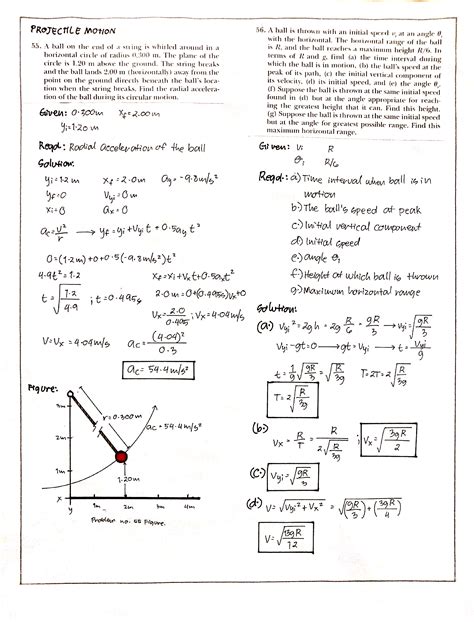 PROJECTILE MOTION
55. A ball on the end of a string is whirled around in a
horizontal circle of radius 0.300 m. The plane of the
circle is 1.20 m above the ground. The string breaks
and the ball lands 2.00 m (horizontally) away from the
point on the ground directly beneath the ball's loca-
tion when the string breaks. Find the radial accelera-
tion of the ball during its circular motion.
Given: 0.300m xf = 2.00m
yi = 1.20 m
Reqd: Radial Acceleration of the ball
Solution:
yi = 1.2 m xf = 2.0m ay = -9.8m/s²
yf = 0 Vyi = 0m
xi = 0 ax = 0
ac = v²/r → yf = yi + Vyi t + 0.5ay t²
0 = (1.2m) + 0 + 0.5(-9.8m/s²)t²
4.9t² = 1.2 xf = xi + Vx t + 0.5ax t²
t = √(1.2/4.9) ; t = 0.495s 2.0m = 0 + (0.495s)Vx + 0
Vx = 2.0/0.495 ; Vx = 4.04m/s
V = Vx = 4.04m/s ac = (4.04)²/0.3
ac = 54.4 m/s²
Figure:
3m
2m
1m
x
y
1m
2m
3m
4m
r = 0.300m
ac = 54.4m/s²
1.20m
Problem no. 55 Figure.
56. A ball is thrown with an initial speed vi at an angle θi
with the horizontal. The horizontal range of the ball
is R, and the ball reaches a maximum height R/6. In
terms of R and g, find (a) the time interval during
which the ball is in motion, (b) the ball's speed at the
peak of its path, (c) the initial vertical component of
its velocity, (d) its initial speed, and (e) the angle θi.
(f) Suppose the ball is thrown at the same initial speed
found in (d) but at the angle appropriate for reach-
ing the greatest height that it can. Find this height.
(g) Suppose the ball is thrown at the same initial speed
but at the angle for greatest possible range. Find this
maximum horizontal range.
Given: Vi R
θi R/6
Reqd: a.) Time interval when ball is in
motion
b.) The ball's speed at peak
c.) Initial vertical component
d.) Initial speed
e.) angle θi
f.) Height at which ball is thrown
g.) Maximum horizontal range
Solution:
(a.) Vyi² = 2gh = 2g R/6 = gR/3 → Vyi = √(gR/3)
Vyi - gt = 0 → gt = Vyi → t = Vyi/g
t = 1/g √(gR/3) = √(R/3g) T = 2t = 2√(R/3g)
T = 2√(R/3g)
(b.) Vx = R/T = R/(2√(R/3g)) ; Vx = √(3gR)/2
(c.) Vyi = √(gR/3)
(d.) V = √(Vyi² + Vx²) = √((gR/3) + (3gR/4))
V = √(13gR/12)